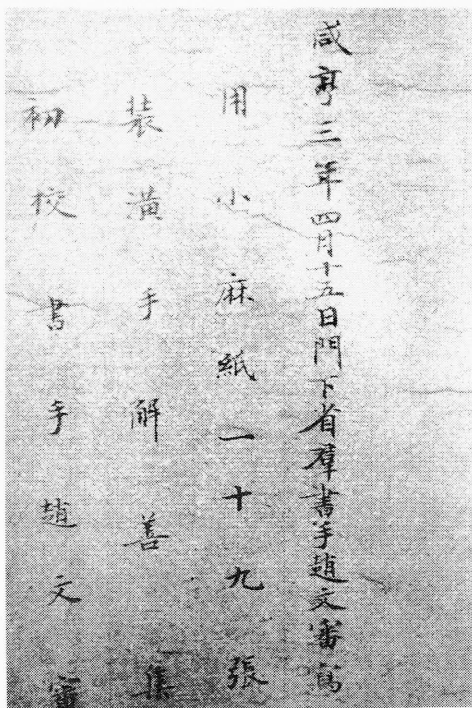 咸亨三年四月十五日門下省群書手趙文審寫
用小麻紙一十九張
裝潢手解善集
初校書手趙文審